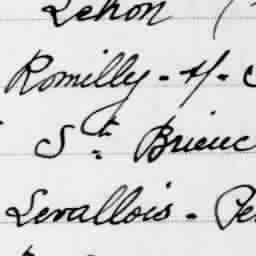 Lehon (
Romilly - s/ - S
St. Brieuc
Levallois - Pe